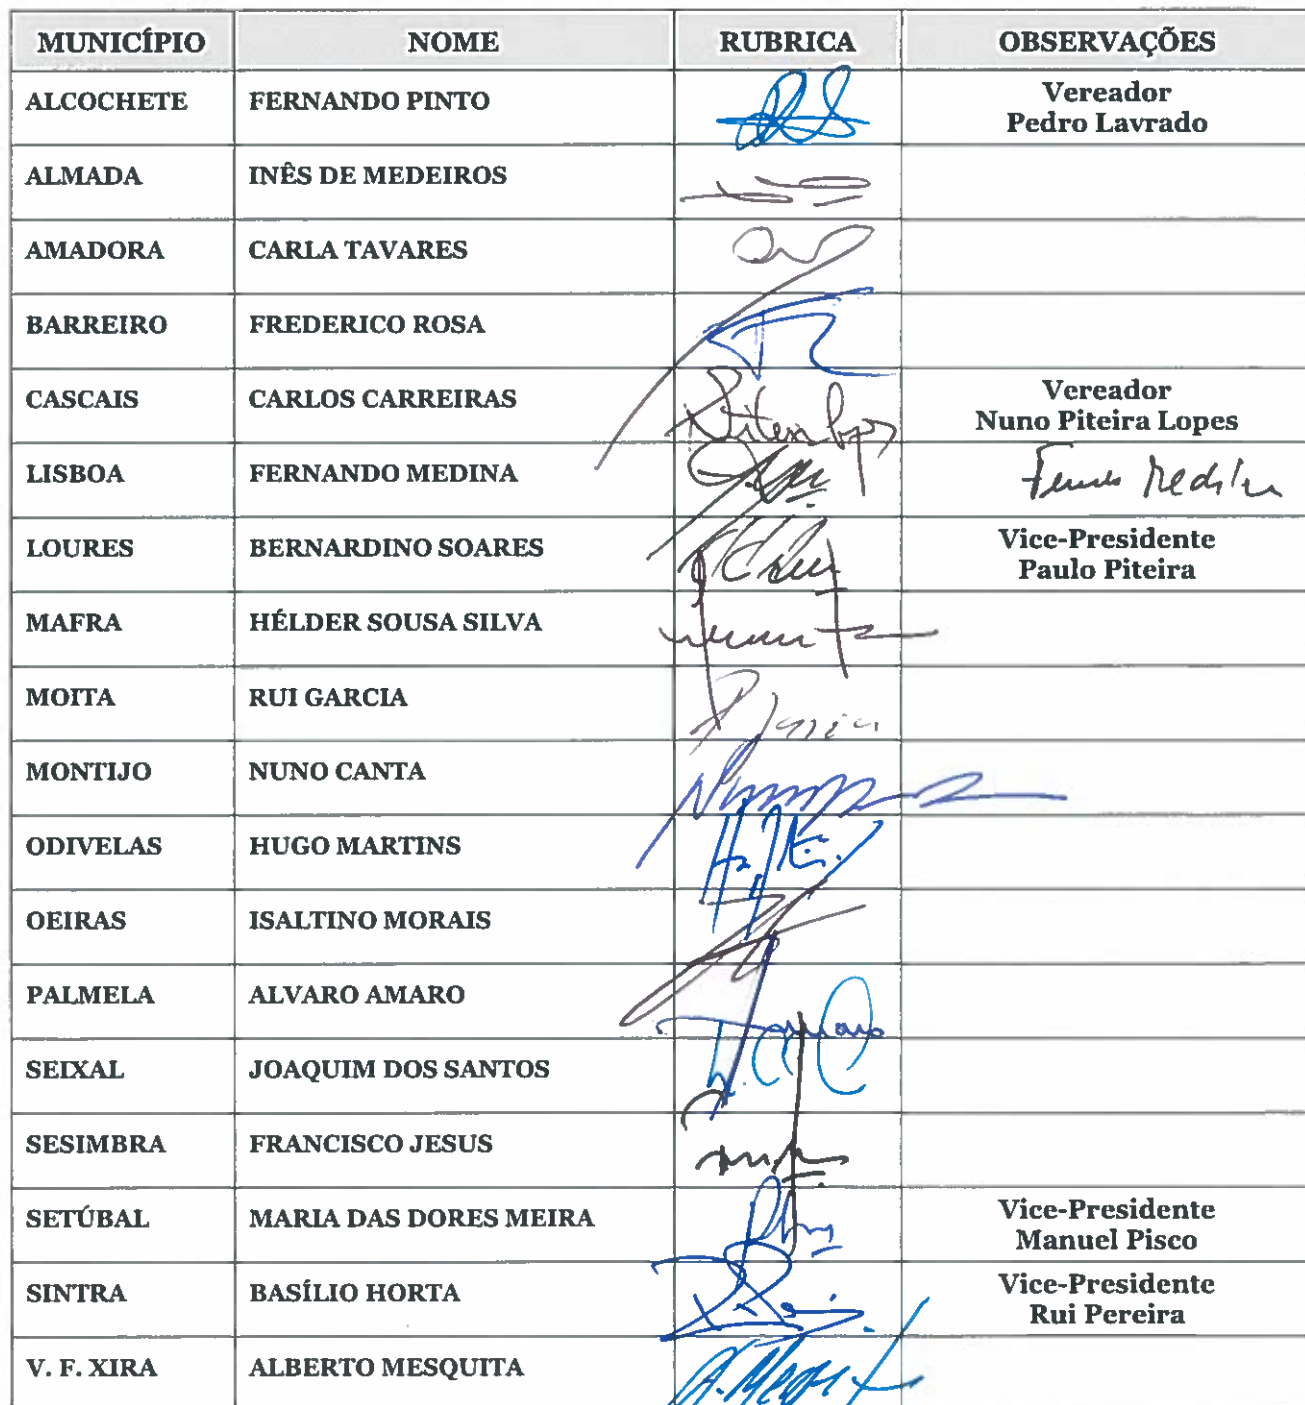 MUNICÍPIO NOME RUBRICA OBSERVAÇÕES
ALCOCHETE FERNANDO PINTO Vereador
Pedro Lavrado
ALMADA INÊS DE MEDEIROS
AMADORA CARLA TAVARES
BARREIRO FREDERICO ROSA
CASCAIS CARLOS CARREIRAS Piteira Lopes Vereador
Nuno Piteira Lopes
LISBOA FERNANDO MEDINA Fernando Medina
LOURES BERNARDINO SOARES Vice-Presidente
Paulo Piteira
MAFRA HÉLDER SOUSA SILVA
MOITA RUI GARCIA
MONTIJO NUNO CANTA
ODIVELAS HUGO MARTINS
OEIRAS ISALTINO MORAIS
PALMELA ALVARO AMARO
SEIXAL JOAQUIM DOS SANTOS
SESIMBRA FRANCISCO JESUS
SETÚBAL MARIA DAS DORES MEIRA Vice-Presidente
Manuel Pisco
SINTRA BASÍLIO HORTA Vice-Presidente
Rui Pereira
V. F. XIRA ALBERTO MESQUITA